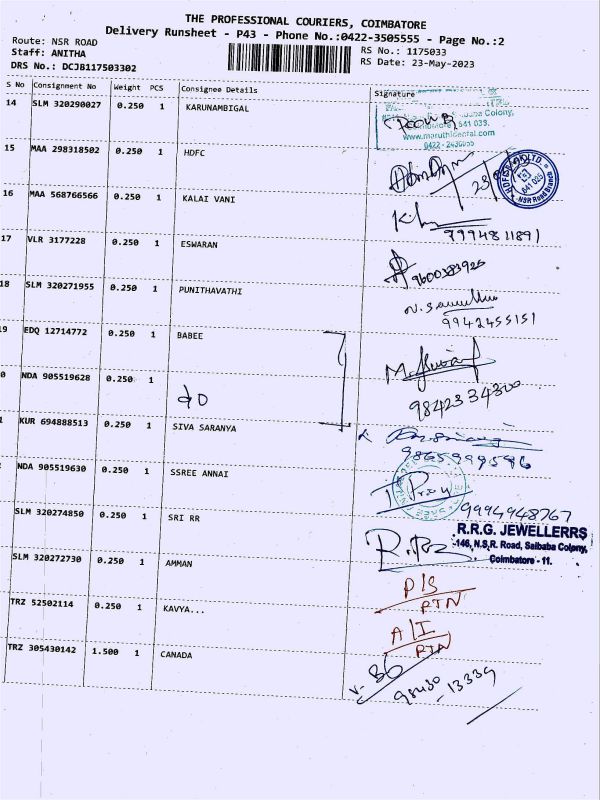 THE PROFESSIONAL COURIERS, COIMBATORE
Delivery Runsheet - P43 - Phone No.:0422-3505555 - Page No.:2
Route: NSR ROAD
Staff: ANITHA
DRS No.: DCJB117503302
RS No.: 1175033
RS Date: 23-May-2023
S No Consignment No Weight PCS Consignee Details Signature
14 SLM 320290027 0.250 1 KARUNAMBIGAL
Colony,
641 038.
www.maruthidental.com
0422 - 2436055
15 MAA 298318502 0.250 1 HDFC
641 025
NSR Road Branch
16 MAA 568766566 0.250 1 KALAI VANI
7994811891
17 VLR 3177228 0.250 1 ESWARAN
9600383926
18 SLM 320271955 0.250 1 PUNITHAVATHI
9942455151
19 EDQ 12714772 0.250 1 BABEE
0 NDA 905519628 0.250 1 do
9842334300
1 KUR 694888513 0.250 1 SIVA SARANYA
9865999596
NDA 905519630 0.250 1 SSREE ANNAI
9994948767
SLM 320274850 0.250 1 SRI RR
R.R.G. JEWELLERRS
146, N.S.R. Road, Saibaba Colony,
Coimbatore - 11.
SLM 320272730 0.250 1 AMMAN
P/S
RTN
TRZ 52502114 0.250 1 KAVYA...
A/I
RTN
TRZ 305430142 1.500 1 CANADA